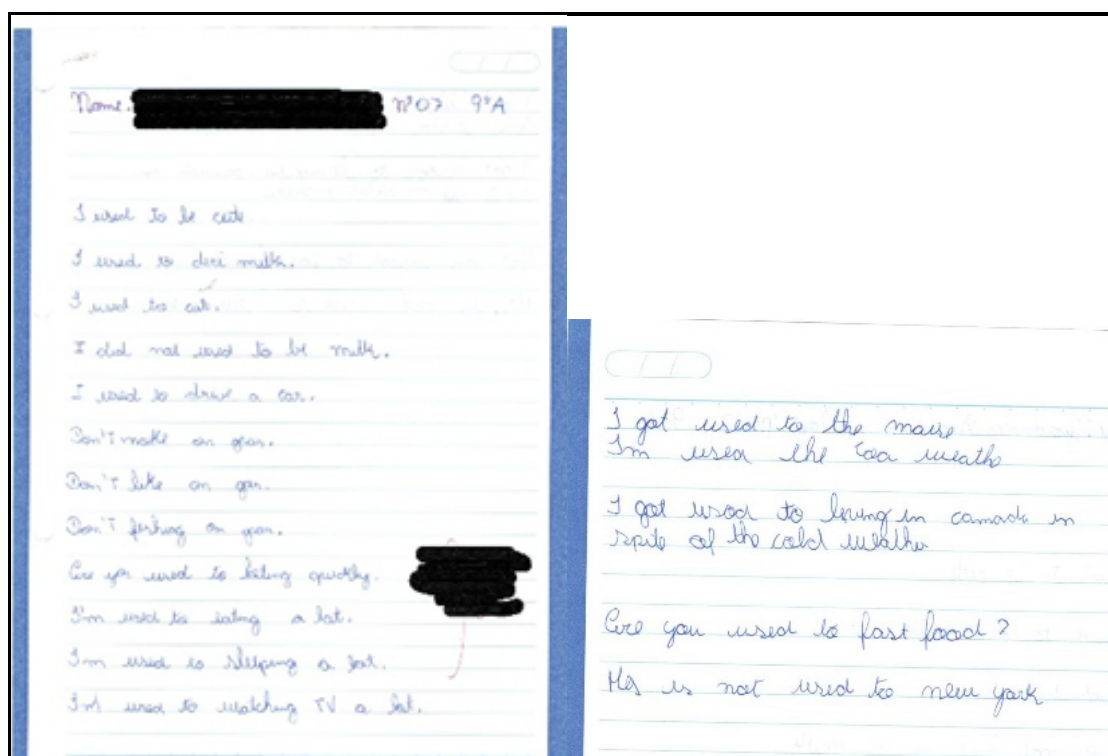 Name: nº07 9ºA
I used to be cute
I used to milk.
I used to
I did not used to be milk.
I used to drive a car.
Don't make on gran.
Don't like on gran.
Don't on gran.
Are you used to quickly.
I'm used to eating a lot.
I'm used to sleeping a lot.
I'm used to watching TV a lot.
I got used to the
I'm used the
I got used to living in in
spite of the cold weather
Are you used to fast food?
is not used to new york